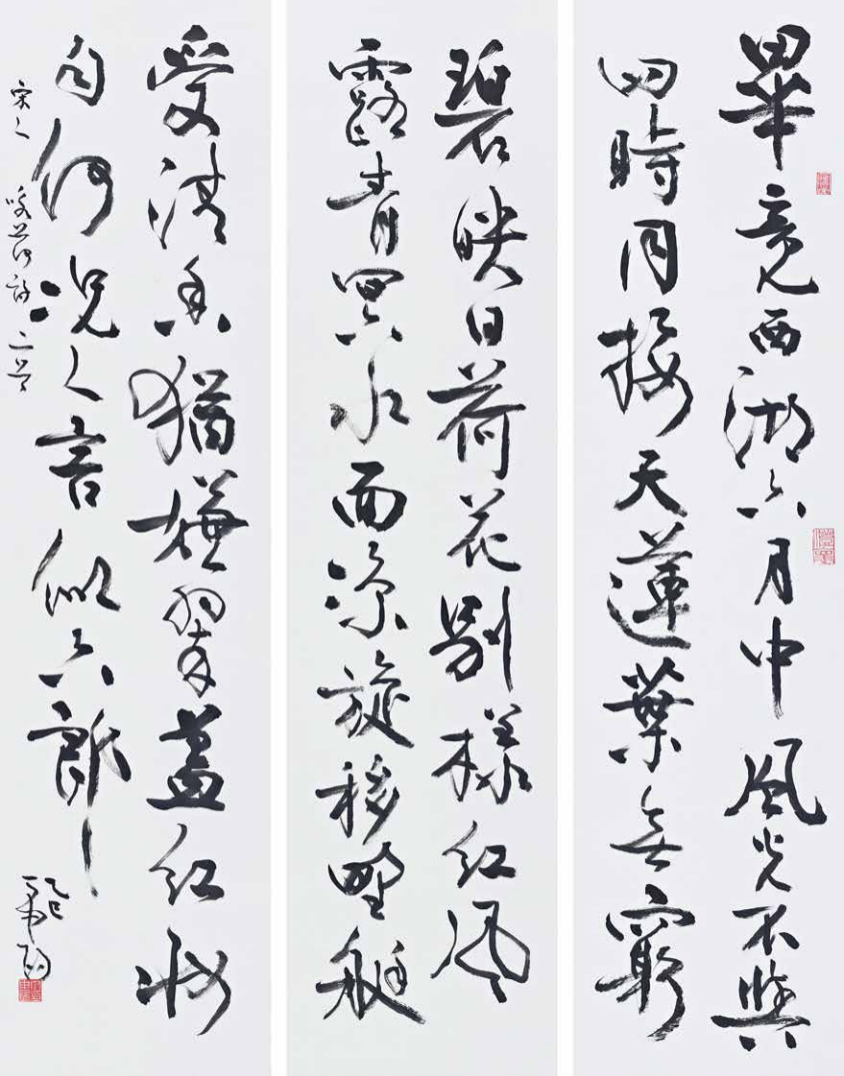 畢竟西湖六月中風光不與
四時同接天蓮葉無窮
碧映日荷花別樣紅風
露青冥水面涼旋移野艇
受清香猶嫌翠蓋紅妝
句何況人言似六郎
宋人咏荷詩二首
乙巳